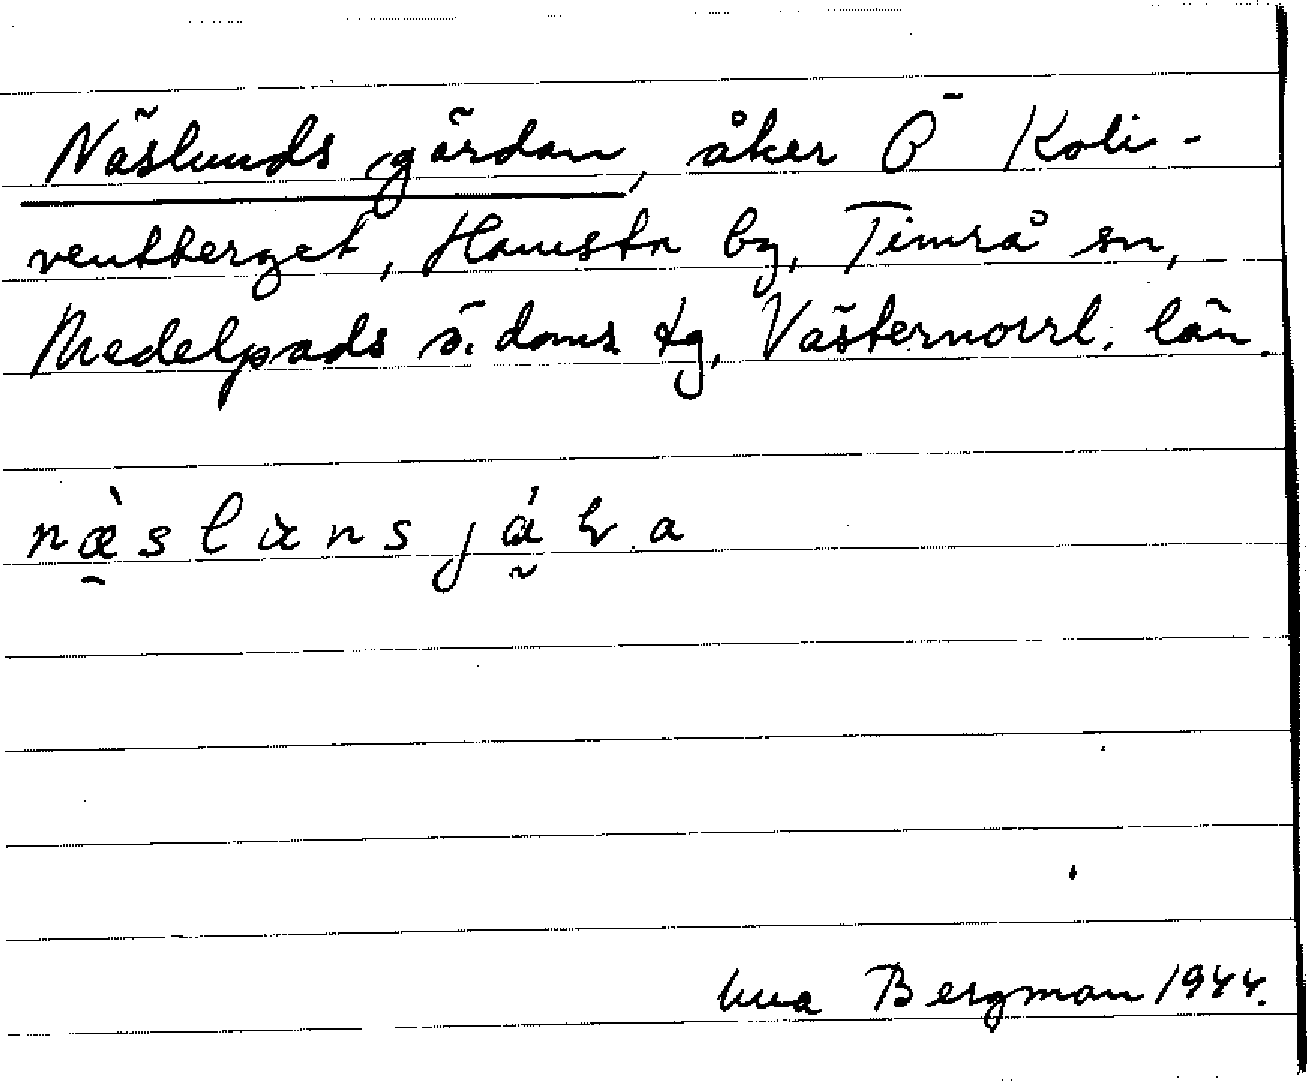 Näslunds gärdan, åker Ö Koli-
ventberget, Hamstn by, Timrå sn,
Medelpads ö. doms. tg, Västernorrl. län.
næslunsjæḷa
Bergman 1944.